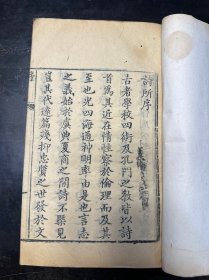 詩所序
古者學校四術及孔門之教皆以詩
首為其近在情性察於倫理而及其
至也光四海通神明率由是也言志
之義始於虞典夏商之間詩不槩見
豈其代遠篇殘抑忠質之世發於文